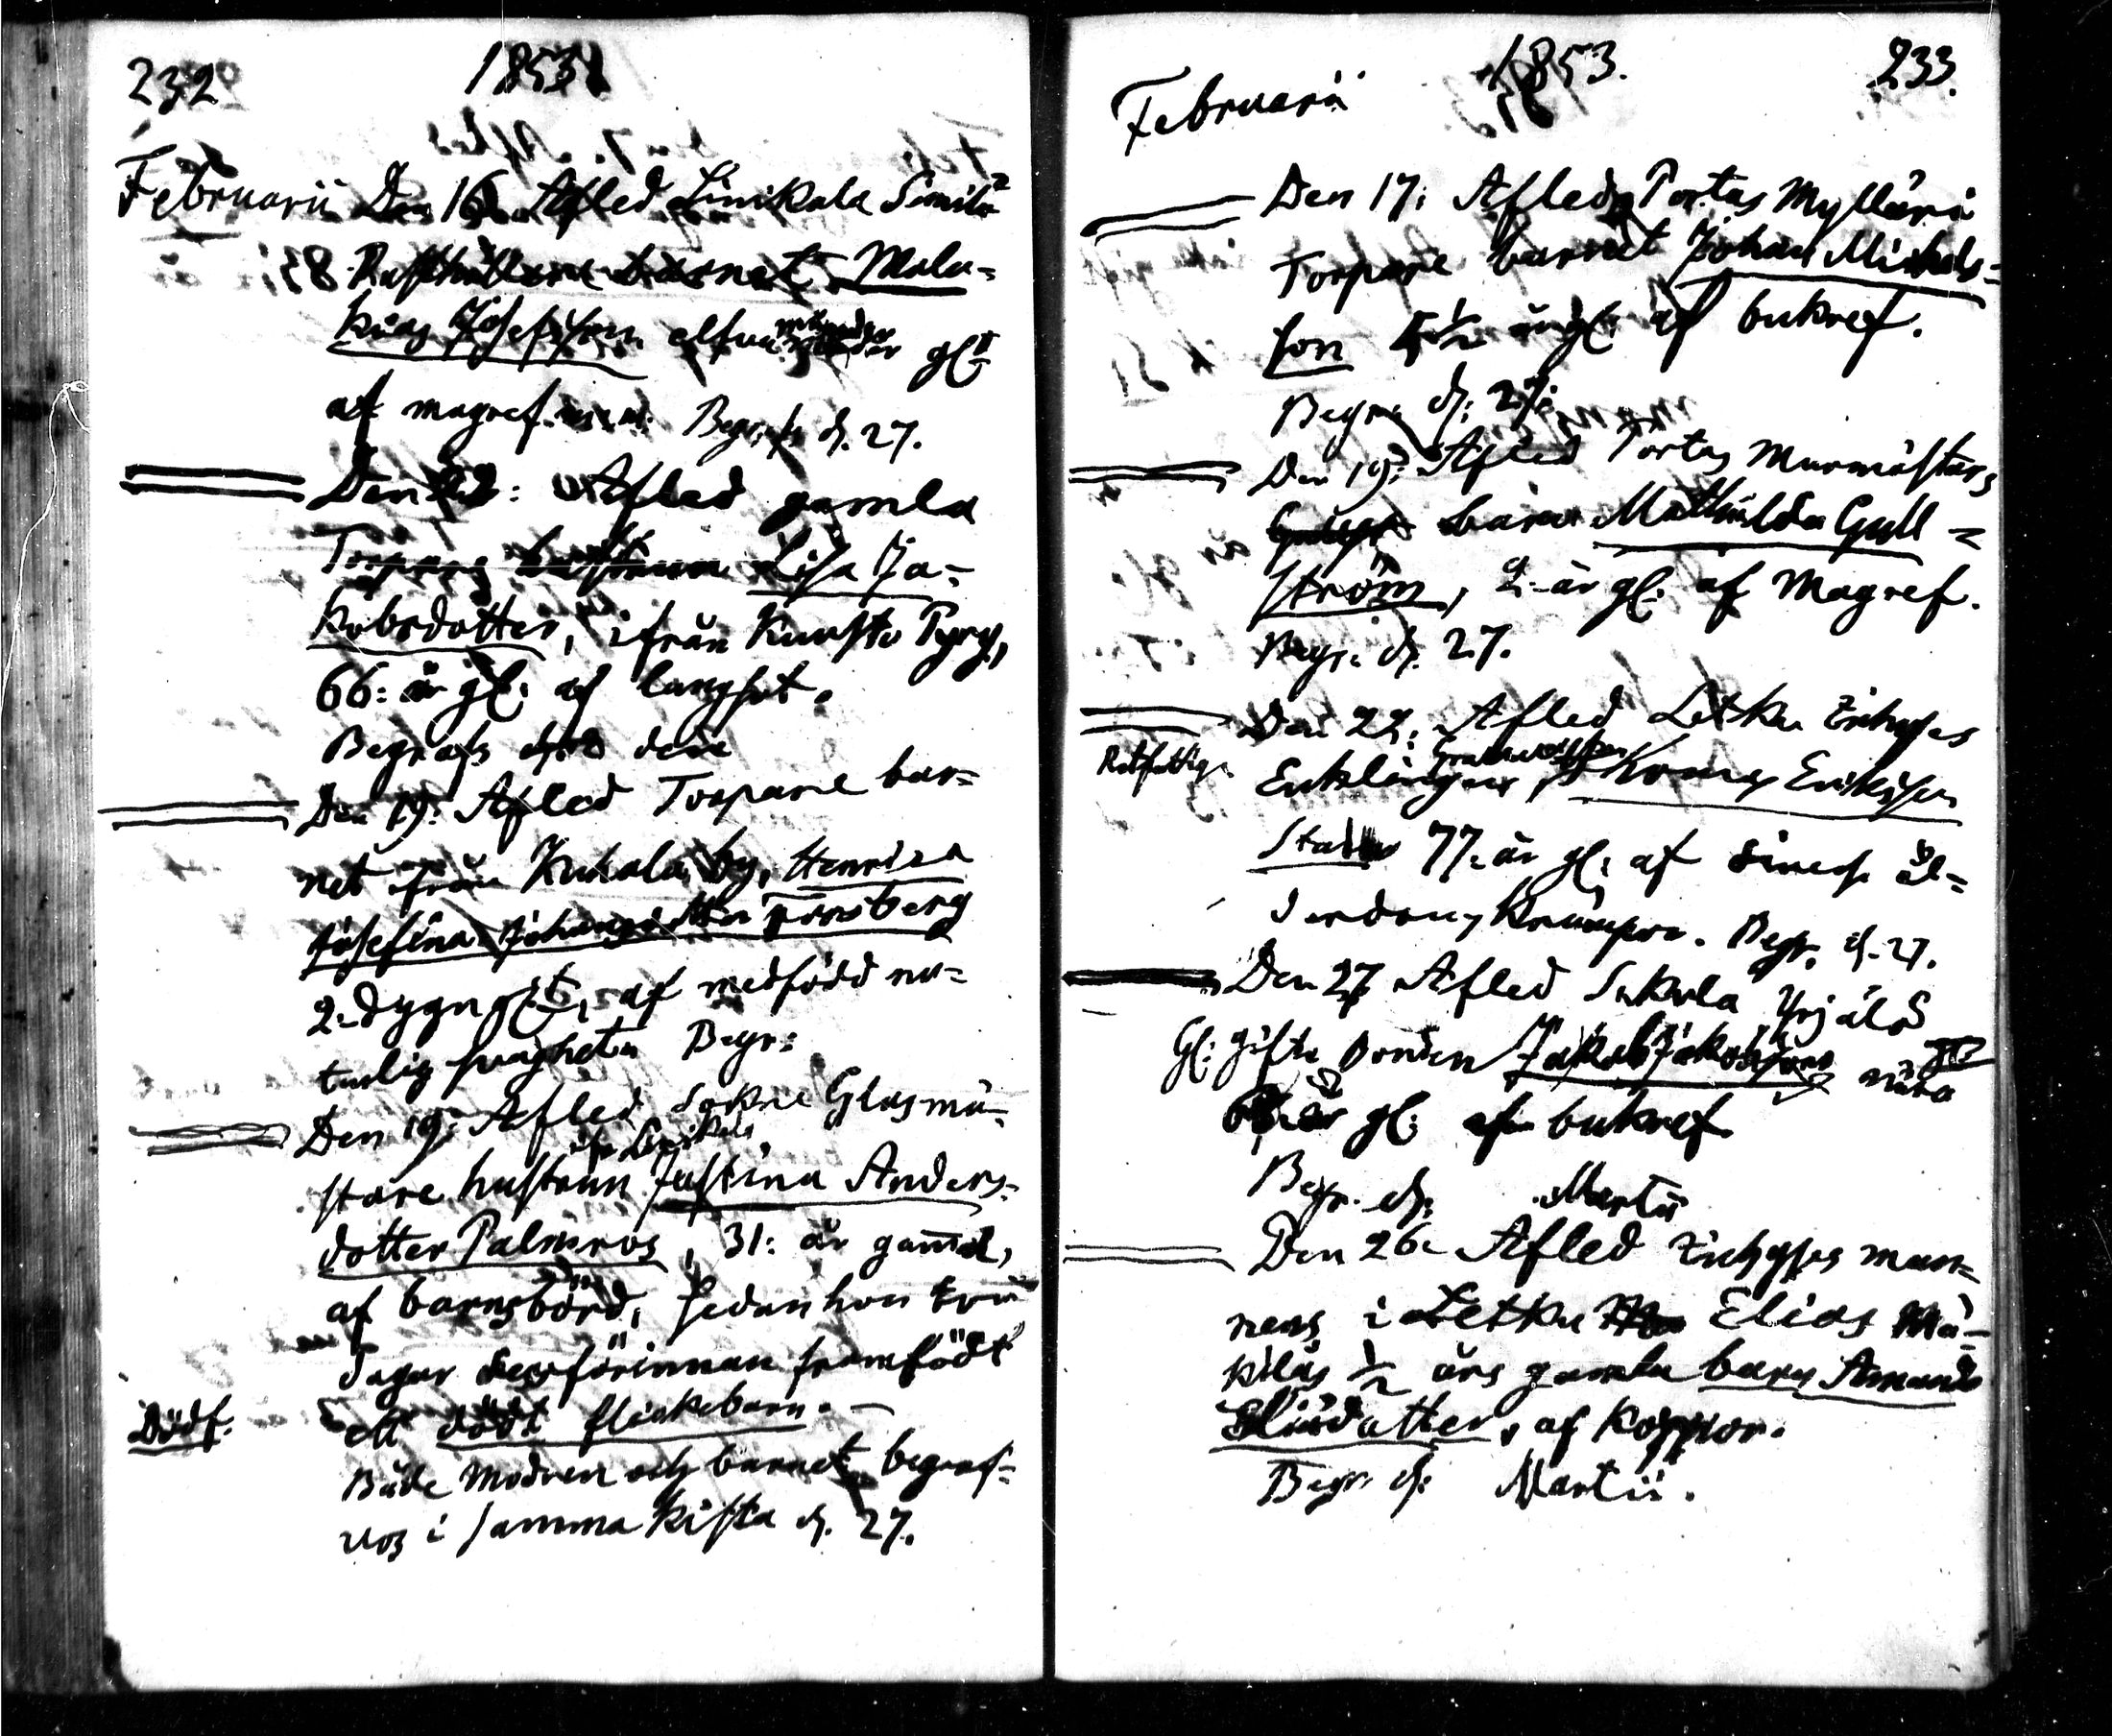 232
1853
Februarii Den 16 Afled Linikala Simila
Rusthållare barnet Mala=
kias Josefsson elfva månader gl:
af magref. Begrofs d. 27.
Den 22: Afled gamla
Torpare hustrun Lisa Ja-
kobsdotter, ifrån Kuusto Pyry,
66: år gl: af langsot.
Begrafs d:
Den 19: Afled Torpare bar=
net från Kuhala by, Henrica
Josefina Johansdotter Forsberg
2-dygn gl:, af medfödd na=
turlig svaghet. Begr:
Den 19: Afled Glasmä-
stare hustrun Justina Anders-
dotter Palmros, 31: år gammal,
af barnsbörd, sedan hon två
dagar förinnan framfödt
Dödf. ett dödt flickebarn. —
Både modren och barnet begraf=
vos i samma kista d. 27.
1853.
233.
Februarii
Den 17: Afled Portas Mylläri
Torpare barnet Johan Michels=
son ½ år gl: af bukref.
Begr: d: 27:
Den 19: Afled Portas Murmästars
barn Mathilda Gull=
ström, 2-år gl: af Magref.
Begr: d. 27.
Den 22: Afled Letku
Rotfattig. Enklingen, Eriksson
77: år gl: af ål=
derdoms Krämpor. Begr. d. 27.
Den 27 Afled Sukula Yrjälä
Gl: gifte Bonden Jakob Jakobsson nära
år gl: af bukref
Begr. d: Martii
Den 26: Afled man=
nens i Letku Elias Mä-
kiläs ½ års gamla barn Amanda
Eliædotter, af Koppor.
Begr d: Martii.